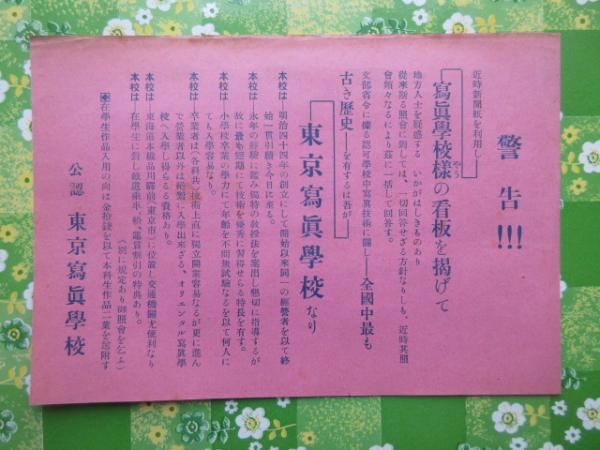 警告!!!
近時新聞紙を利用し
寫眞學校様の看板を揭げて
やう
地方人士を疑惑する いかがはしきものあり
從來斯る照會に對しては、一切回答せざる方針なりしも、近時其照
會頻々なるにより茲に一括して回答す。
文部省令に據る認可學校中寫眞技術に關し―全國中最も
古き歷史―を有するは吾が
東京寫眞學校なり
本校は 明治四十四年の創立にして開始以來同一の經營者を以て終
始一貫引續き今日に來る。
本校は 永年の經驗に鑑み獨特の敎授法を案出し懇切に指導するが
故に最も短期にて技術を優秀に習得せらる特長を有す。
本校は 小學校卒業の學力にて年齡を不問無試驗なるを以て何人に
ても入學容易なり。
本校は 卒業後は(各科共)技術上直に獨立開業容易なるが更に進ん
で營業者以外は絕對に入學出來ざる、オリエンタル寫眞學
校へ入學し得らるる資格あり。
本校は 東海道本線品川驛前(東京市)に位置し交通機關尤便利なり
本校は 在學生に對し鐵道乘車、船、電賃割引の特典あり。
(別に規定あり御照會を乞ふ)
在學生作品入用の向は金拾錢を以て本科生作品二葉を送附す
公認 東京寫眞學校